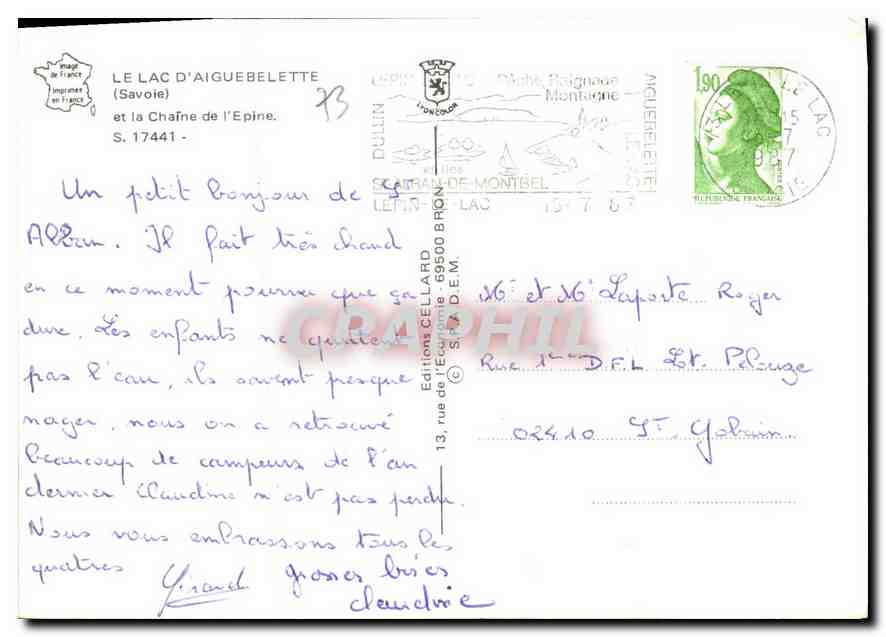 Image
de France
Imprimée
en France
LE LAC D'AIGUEBELETTE
(Savoie)
et la Chaîne de l'Epine.
S. 17441 -
73
LYONCOLOR
Pêche Baignade
Montagne
DULLIN
AIGUEBELETTE
LE LAC
ses îles
ST ALBAN-DE-MONTBEL
LEPIN-LE-LAC 15-7 87
1,90
REPUBLIQUE FRANÇAISE
LE LAC
15
1987
Un petit bonjour de St
Alban. Il fait très chaud
en ce moment pourvu que ça
dure. Les enfants ne quittent
pas l'eau, ils savent presque
nager, nous on a retrouvé
beaucoup de campeurs de l'an
dernier Claudine n'est pas perdu.
Nous vous embrassons tous les
quatres
grosses bises
Claudine
Editions CELLARD
13, rue de l'Economie - 69500 BRON
© S.P.A.D.E.M.
Mr et Me Laporte Roger
Rue 1ère D.F.L Lt. Pelouze
02410 St. Gobain.
CPAPHIL